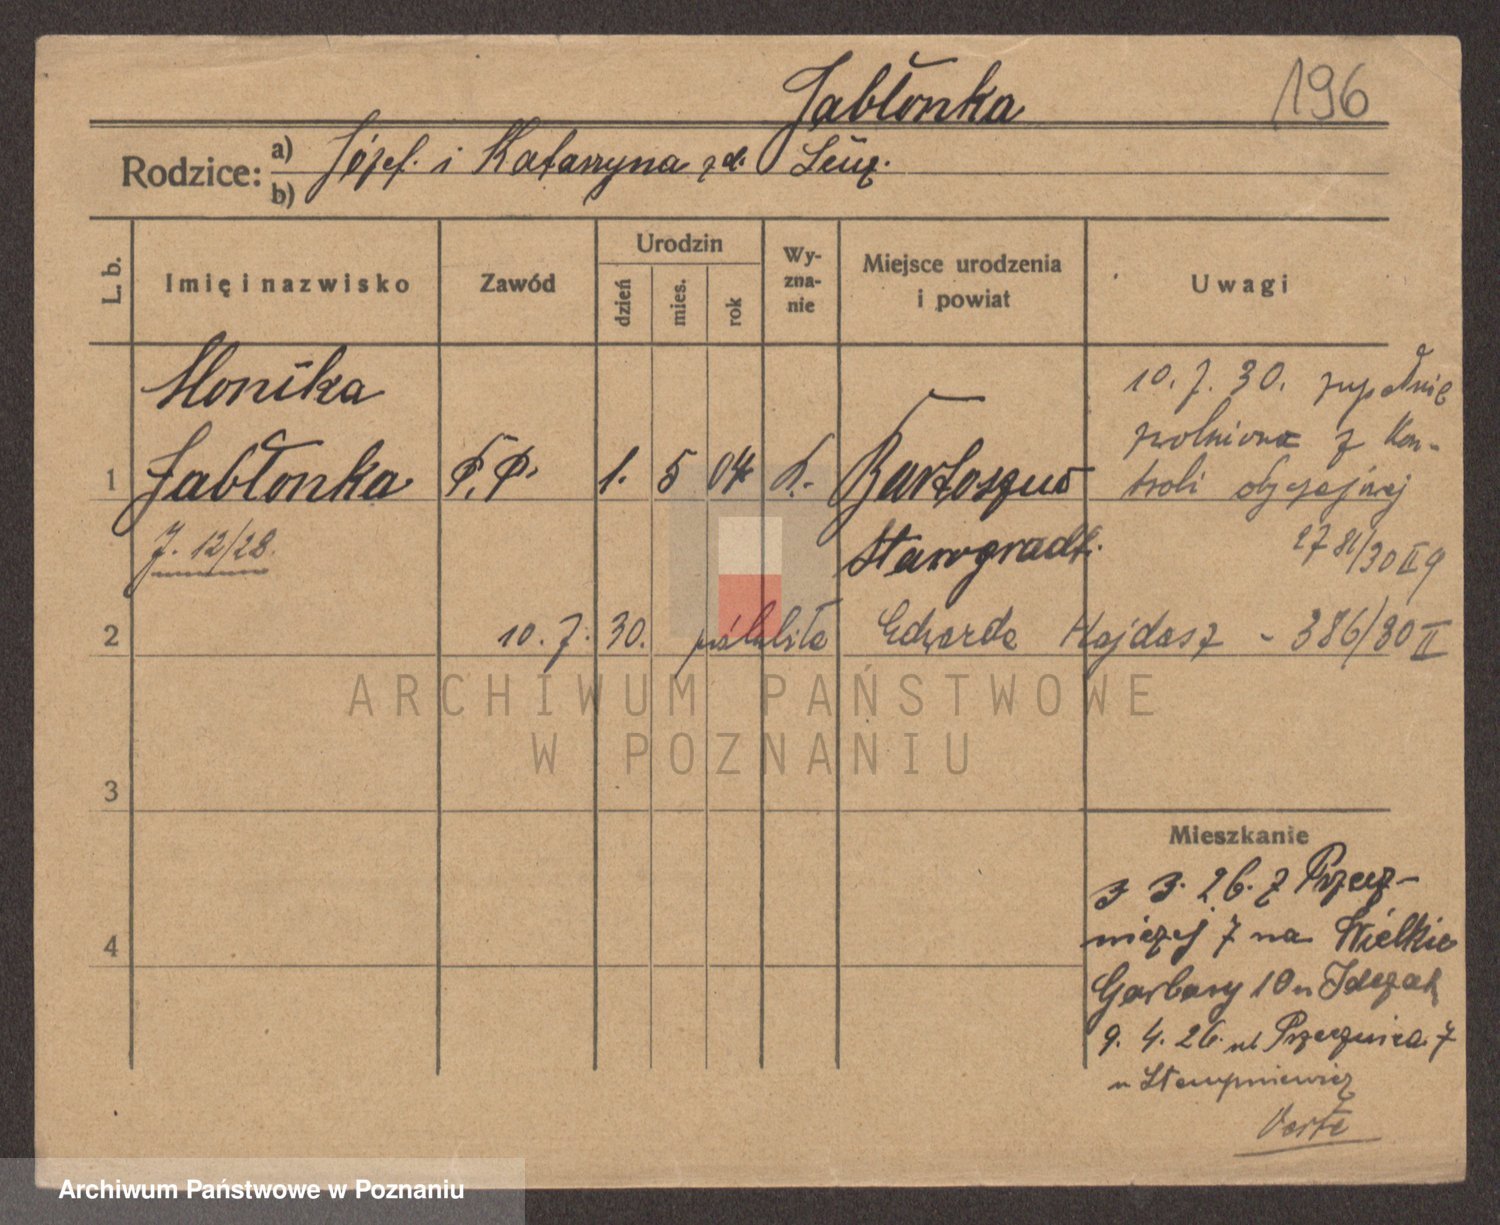 Jabłonka
196
Rodzice: a) Józef i Katarzyna zd.
b)
L. b.
Imię i nazwisko
Zawód
Urodzin
dzień
mies.
rok
Wy-
zna-
nie
Miejsce urodzenia
i powiat
Uwagi
Monika
10. 7. 30. zupełnie
zwolniona z kon-
1 Jabłonka P.P. 1. 5 04 k. Bartoszus
troli obyczajnej
J. 12/28.
Starogradk.
2781/30 II 9
2 10. 7. 30. poślubiła Edwarda Hajdasz - 386/30 II
ARCHIWUM PAŃSTWOWE
W POZNANIU
3
Mieszkanie
3 3. 26. z Przecz-
niczej 7 na Wielkie
4
Garbary 10 u Idczak
9. 4. 26. ul Przecznica 7
u Stempniewicz
Verte
Archiwum Państwowe w Poznaniu